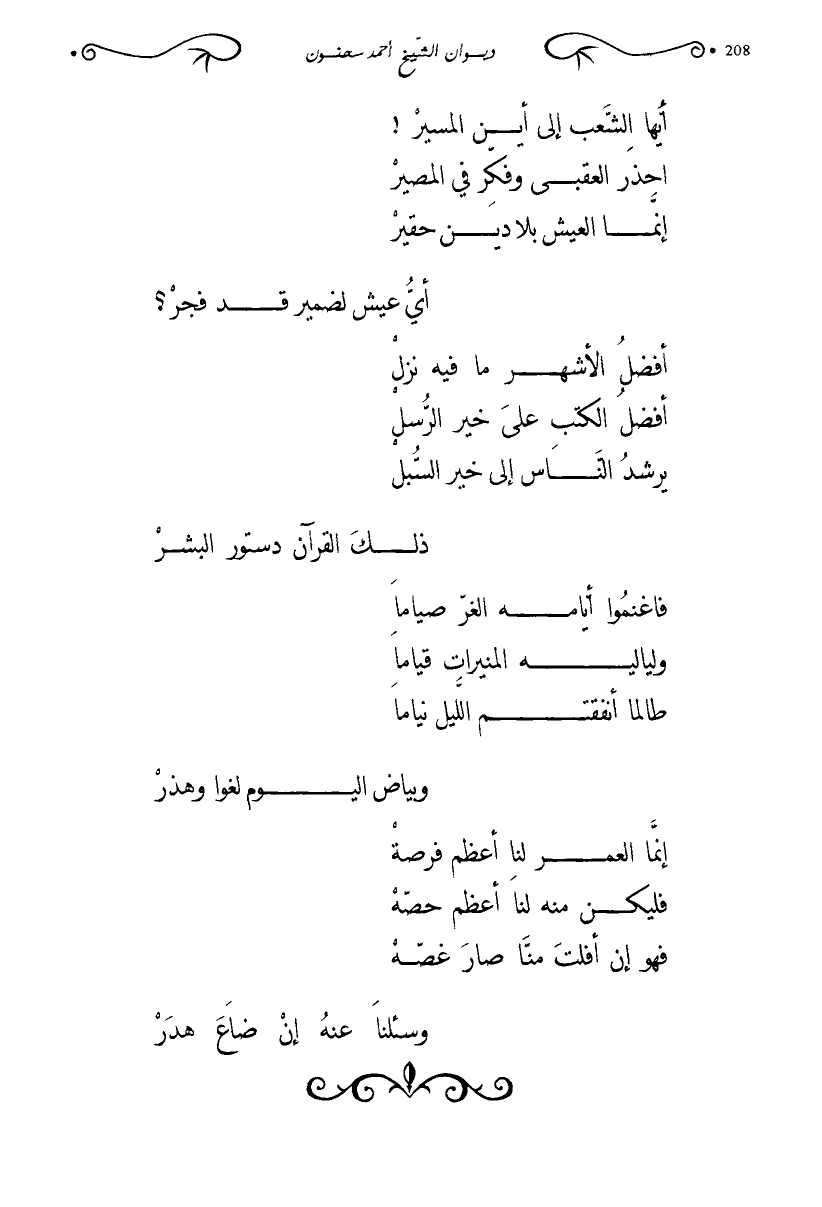 208 ديوان الشّيخ أحمد سحنون
أيُها الشَّعب إلى أين المسيرْ !
احذَر العقبى وفكّر في المصيرْ
إنَّما العيش بلا دين حقيرْ
أيُّ عيش لضمير قد فجرْ؟
أفضلُ الأشهر ما فيه نزلْ
أفضلُ الكتبِ علىَ خير الرُّسلْ
يرشدُ النَّاس إلى خير السُّبلْ
ذلكَ القرآن دستور البشرْ
فاغنمُوا أيامه الغرّ صياماَ
ولياليه المنيراتِ قياماَ
طالما أنفقتم اللَّيل نياماَ
وبياض اليوم لغوا وهذرْ
إنَّما العمر لنا أعظم فرصةْ
فليكن منه لناَ أعظم حصّهْ
فهو إن أفلتَ منَّا صارَ غصّهْ
وسئلناَ عنهُ إنْ ضاعَ هدَرْ